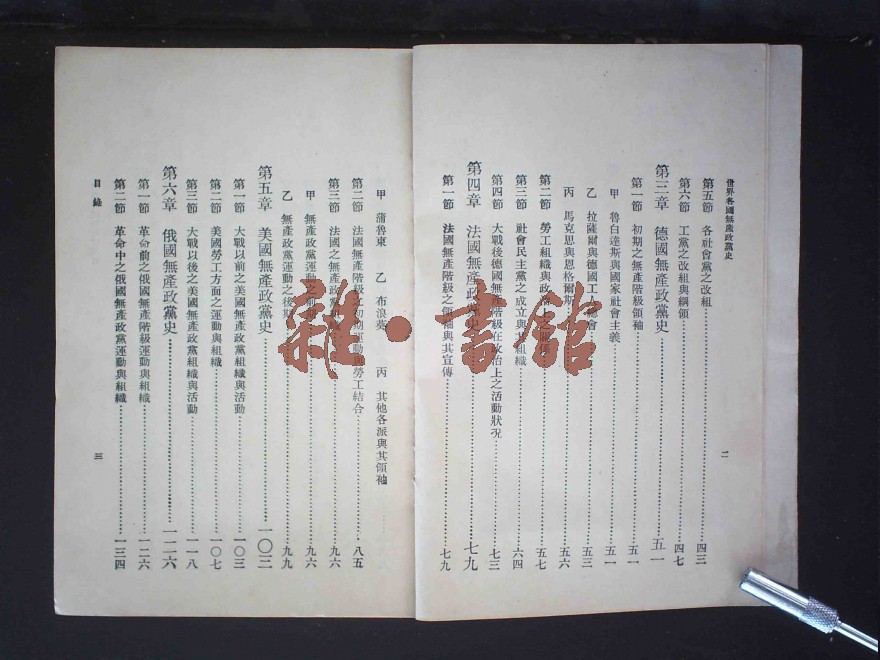 世界各國無產政黨史
二
第五節 各社會黨之改組 四三
第六節 工黨之改組與綱領 四七
第三章 德國無產政黨史 五一
第一節 初期之無產階級領袖 五一
甲 魯白達斯與國家社會主義 五一
乙 拉薩爾與德國工人總會 五三
丙 馬克思與恩格爾斯 五六
第二節 勞工組織與政 五七
第三節 社會民主黨之成立與其組織 六四
第四節 大戰後德國無產階級在政治上之活動狀況 七三
第四章 法國無產政黨史 七九
第一節 法國無產階級之領袖與其宣傳 七九
甲 蒲魯東 乙 布浪葵 丙 其他各派與其領袖
第二節 法國無產階級之初期運動與勞工結合 八五
第三節 法國之無產政黨 九六
甲 無產政黨運動之前期 九六
乙 無產政黨運動之後期 九九
第五章 美國無產政黨史 一〇三
第一節 大戰以前之美國無產政黨組織與活動 一〇三
第二節 美國勞工方面之運動與組織 一〇七
第三節 大戰以後之美國無產政黨組織與活動 一一八
第六章 俄國無產政黨史 一二六
第一節 革命前之俄國無產階級運動與組織 一二六
第二節 革命中之俄國無產政黨運動與組織 一三四
目錄
三
雜·書館